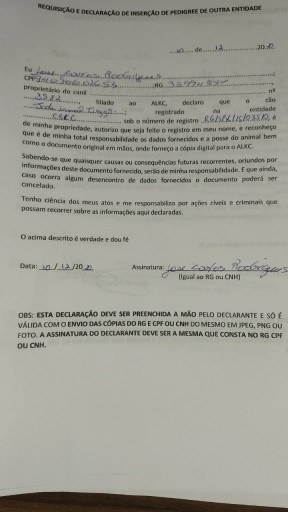 REQUISIÇÃO E DECLARAÇÃO DE INSERÇÃO DE PEDIGREE DE OUTRA ENTIDADE
10 de 12 20
Eu Jose Carlos Rodrigues
CPF RG
proprietário do canil nº
filiado ao ALKC, declaro que o cão
registrado na entidade
sob o número de registro é
de minha propriedade, autorizo que seja feito o registro em meu nome, e reconheço
que é de minha total responsabilidade os dados fornecidos e a posse do animal bem
como o documento original em mãos, onde forneço a cópia digital para o ALKC.
Sabendo-se que quaisquer causas ou consequências futuras recorrentes, oriundos por
informações deste documento fornecido, serão de minha responsabilidade. E que ainda,
caso ocorra algum desencontro de dados fornecidos o documento poderá ser
cancelado.
Tenho ciência dos meus atos e me responsabilizo por ações cíveis e criminais que
possam recorrer sobre as informações aqui declaradas.
O acima descrito é verdade e dou fé
Data: 10/12/20 Assinatura: Jose Carlos Rodrigues
(Igual ao RG ou CNH)
OBS: ESTA DECLARAÇÃO DEVE SER PREENCHIDA A MÃO PELO DECLARANTE E SÓ É
VÁLIDA COM O ENVIO DAS CÓPIAS DO RG E CPF OU CNH DO MESMO EM JPEG, PNG OU
FOTO. A ASSINATURA DO DECLARANTE DEVE SER A MESMA QUE CONSTA NO RG CPF
OU CNH.